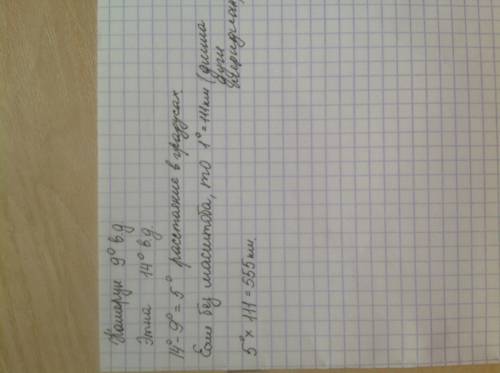 Камерун 9° в.д.
Этна 14° в.д.
14° - 9° = 5° расстояние в градусах
Если без масштаба, то 1° = 111 км (длина
дуги
меридиана)
5° × 111 = 555 км